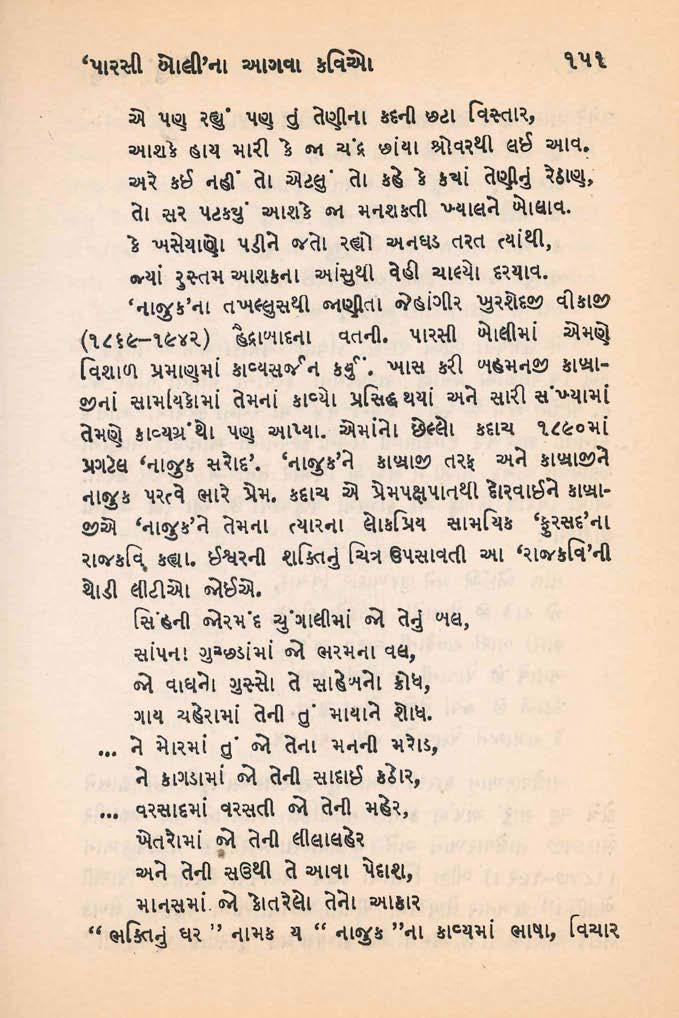 ‘પારસી બોલી’ના આગવા કવિઓ ૧૫૧
એ પણ રહ્યું પણ તું તેણીના કદની છટા વિસ્તાર,
આશકે હાય મારી કે જા ચંદ્ર છાંયા શ્રોવરથી લઈ આવ.
અરે કઈ નહીં તો એટલું તો કહે કે કયાં તેણીનું રેઠાણ,
તો સર પટકયું આશકે જા મનશકતી ખ્યાલને બોલાવ.
કે ખસેયાણો પડીને જતો રહ્યો અનઘડ તરત ત્યાંથી,
જ્યાં રુસ્તમ આશકના આંસુથી વેહી ચાલ્યો દરયાવ.
‘નાજુક’ના તખલ્લુસથી જાણીતા જેહાંગીર ખુરશેદજી વીકાજી
(૧૮૬૯–૧૯૪૨) હૈદ્રાબાદના વતની. પારસી બોલીમાં એમણે
વિશાળ પ્રમાણમાં કાવ્યસર્જન કર્યું. ખાસ કરી બહમનજી કાબ્રા-
જીનાં સામયિકોમાં તેમનાં કાવ્યો પ્રસિદ્ધ થયાં અને સારી સંખ્યામાં
તેમણે કાવ્યગ્રંથો પણ આપ્યા. એમાંનો છેલ્લો કદાચ ૧૮૯૦માં
પ્રગટેલ ‘નાજુક સરોદ’. ‘નાજુક’ને કાબ્રાજી તરફ અને કાબ્રાજીને
નાજુક પરત્વે ભારે પ્રેમ. કદાચ એ પ્રેમપક્ષપાતથી દોરવાઈને કાબ્રા-
જીએ ‘નાજુક’ને તેમના ત્યારના લોકપ્રિય સામયિક ‘ફુરસદ’ના
રાજકવિ કહ્યા. ઈશ્વરની શક્તિનું ચિત્ર ઉપસાવતી આ ‘રાજકવિ’ની
થોડી લીટીઓ જોઈએ.
સિંહની જોરમંદ ચુંગાલીમાં જો તેનું બલ,
સાંપના ગુચ્છડાંમાં જો ભરમના વલ,
જો વાઘનો ગુસ્સો તે સાહેબનો ક્રોધ,
ગાય ચહેરામાં તેની તું માયાને શોધ.
... ને મોરમાં તું જો તેના મનની મરોડ,
ને કાગડામાં જો તેની સાદાઈ કઠોર,
... વરસાદમાં વરસતી જો તેની મહેર,
ખેતરોમાં જો તેની લીલાલહેર
અને તેની સઉથી તે આવા પેદાશ,
માનસમાં જો કોતરેલો તેનો આકાર
“ ભક્તિનું ઘર ” નામક ય “ નાજુક ”ના કાવ્યમાં ભાષા, વિચાર